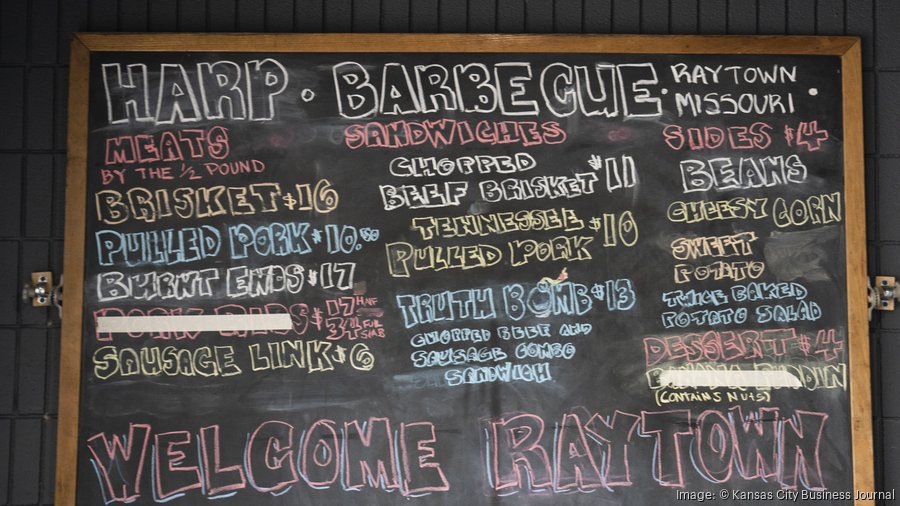 HARP · BARBECUE · RAYTOWN MISSOURI ·
MEATS
BY THE 1/2 POUND
BRISKET $16
PULLED PORK $10.50
BURNT ENDS $17
PORK RIBS $17 HALF
34 FULL SLAB
SAUSAGE LINK $6
SANDWICHES
CHOPPED
BEEF BRISKET $11
TENNESSEE
PULLED PORK $10
TRUTH BOMB $13
CHOPPED BEEF AND
SAUSAGE COMBO
SANDWICH
SIDES $4
BEANS
CHEESY CORN
SWEET
POTATO
TWICE BAKED
POTATO SALAD
DESSERT $4
BANANA PUDDIN
(CONTAINS NUTS)
WELCOME RAYTOWN
Image: © Kansas City Business Journal